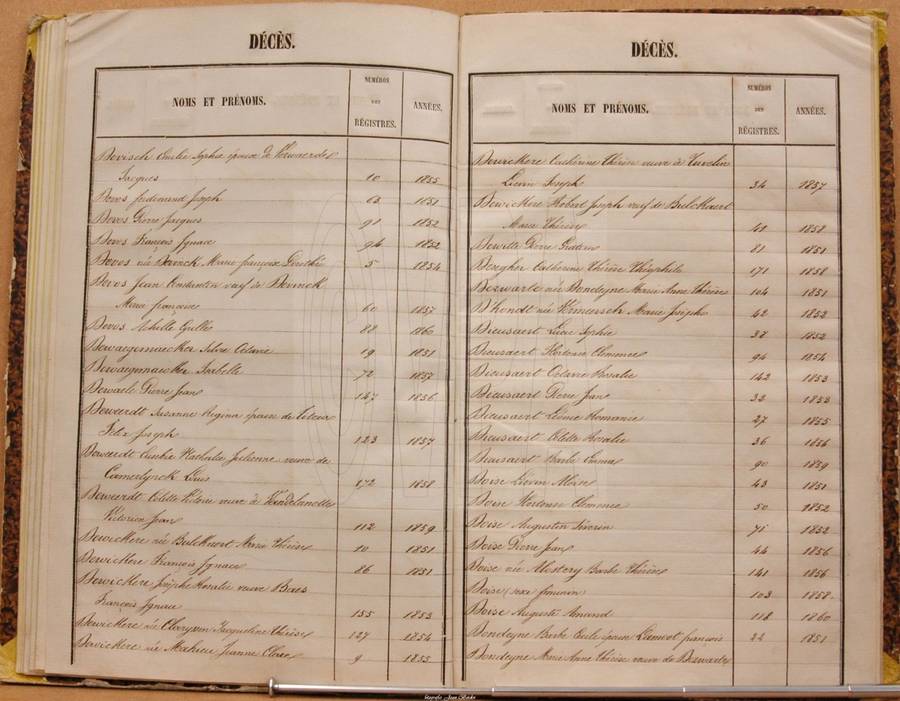 DÉCÈS.
NOMS ET PRÉNOMS. NUMÉROS DES RÉGISTRES. ANNÉES.
Jacques 10 1855
Devos ferdinand Joseph 63 1851
Devos Pierre Jacques 91 1852
Devos François Ignace 94 1852
Devos née Devinck Marie françoise 5 1854
Devos Jean Constantin veuf de Devinck
Marie françoise 61 1857
Devos Achille 88 1860
Dewaegemaecker Silvie Octavie 19 1851
Dewaegemaecker Isabelle 72 1857
Dewaele Pierre Jean 147 1856
Deweerdt Susanne Regina épouse de
Felix Joseph 123 1857
Deweerdt Eunice Nathalie Julienne veuve de
Camerlynck Louis 172 1858
Deweerdt Colette Victoire veuve de Vandelanotte
Victorien Jean 112 1859
Dewickere née Bulckaert Marie Thérèse 10 1851
Dewickere François Ignace 86 1851
Dewickere Josèphe Rosalie veuve Baes
François Ignace 155 1853
Dewickere née Jacqueline Thérèse 127 1854
Dewickere née Mahieu Jeanne Claire 9 1855
DÉCÈS.
NOMS ET PRÉNOMS. NUMÉROS DES RÉGISTRES. ANNÉES.
Dewickere Catherine Thérèse veuve de
Lievin Joseph 34 1857
Dewickere Robert Joseph veuf de Bulckaert
Marie Thérèse 41 1858
Dewitte Pierre 81 1851
Catherine Thérèse Théophile 171 1858
Dezwarte née Dondeyne Marie Anne Thérèse 104 1851
D'hondt née Marie Josèphe 42 1852
Dieusaert Lucie Sophie 38 1852
Dieusaert Hortense Clemence 94 1854
Dieusaert Octavie Rosalie 142 1853
Dieusaert Pierre Jean 32 1853
Dieusaert Léonie Romanie 27 1855
Dieusaert Colette Rosalie 36 1856
Dieusaert Barbe Emma 90 1859
Doise Lievin Aloïse 43 1851
Doise Hortense Clemence 50 1852
Doise Augustin Séverin 71 1852
Doise Pierre Jean 44 1856
Doise née Barbe Thérèse 141 1856
Doise (sexe feminin) 103 1858
Doise Auguste Amand 118 1860
Dondeyne Barbe épouse Lamoot françois 22 1851
Dondeyne Marie Anne thérèse veuve de Dezwarte